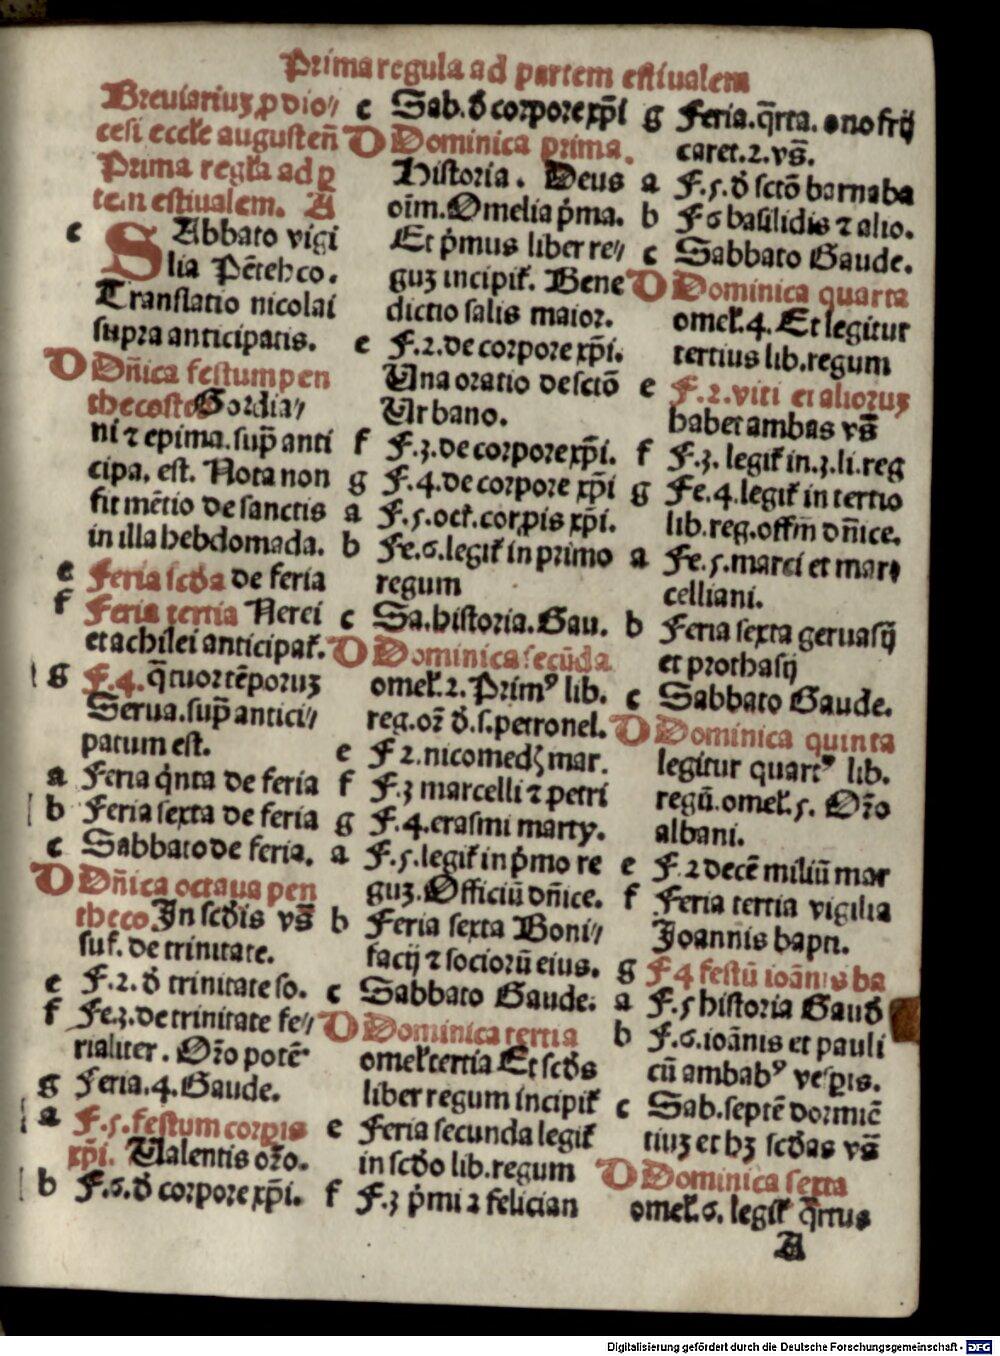 Prima regula ad partem estiualem
Breuiariuʒ ꝓ dio⸗
cesi eccłe augusteñ
Prima regła ad ꝑ
tem estiualem. A
c SAbbato vigi
lia Pēthco.
Translatio nicolai
supra anticipatis.
D Dñica festum pen
thecostes Gordia⸗
ni ⁊ epima. sup̄ anti
cipa. est. Nota non
fit mētio de sanctis
in illa hebdomada.
e Feria scďa de feria
f Feria tertia Nerei
et achilei anticipať.
g F.4. q̄tuor tēporuʒ
Serua. sup̄ antici⸗
patum est.
a Feria q̇nta de feria
b Feria sexta de feria
c Sabbato de feria.
D Dñica octaua pen
theco. In scďis vs̄
suf. de trinitate.
e F.2. ď trinitate so.
f Fe.3. de trinitate fe⸗
rialiter. Orō potē
g Feria.4. Gaude.
a F.5. festum corꝑis
xp̄i. Ualentis orō.
b F.6. ď corpore xp̄i.
c Sab. ď corpore xp̄i
D Dominica prima.
Historia. Deus
oīm. Omelia ṗma.
Et ṗmus liber re⸗
guʒ incipiť. Bene
dictio salis maior.
e F.2. de corpore xp̄i.
Una oratio de sctō
Urbano.
f F.3. de corpore xp̄i.
g F.4. de corpore xp̄i
a F.5. oct. corꝑis xp̄i.
b Fe.6. legiť in primo
regum
c Sa. historia. Gau.
D Dominica secūda
omeł.2. Primꝰ lib.
reg. or̄ ď.s. petronel.
e F 2. nicomedꝫ mar.
f F.3 marcelli ⁊ petri
g F.4. erasmi marty.
a F.5. legiť in ṗmo re
guʒ. Officiū dñice.
b Feria sexta Boni⸗
facij ⁊ sociorū eius.
c Sabbato Gaude.
D Dominica tertia
omeł tertia Et scďs
liber regum incipiť
e Feria secunda legiť
in scďo lib. regum
f F.3 ṗmi ⁊ felician
g Feria. q̄rta. onofrij
caret.2. vs̄.
a F.5. ď sctō barnaba
b F 6 basilidis ⁊ alio.
c Sabbato Gaude.
D Dominica quarta
omeł.4. Et legitur
tertius lib. regum
e F.2. viti et alioruʒ
habet ambas vs̄
f F.3. legiť in.3. li. reg
g Fe.4. legiť in tertio
lib. reg. offm̄ dñice.
a Fe.5. marci et mar⸗
celliani.
b Feria sexta geruasij
et prothasij
c Sabbato Gaude.
D Dominica quinta
legitur quartꝰ lib.
regū. omeł.5. Orō
albani.
e F.2 decē miliū mar
f Feria tertia vigilia
Joannis bapti.
g F 4 festū ioānis ba
a F.5 historia Gauď
b F.6. ioānis et pauli
cū ambabꝰ vesꝑis.
c Sab. septē dormiē
tiuʒ et hʒ scďas vs̄
D Dominica sexta
omeł.6. legiť q̄rtus
A
Digitalisierung gefördert durch die Deutsche Forschungsgemeinschaft - DFG